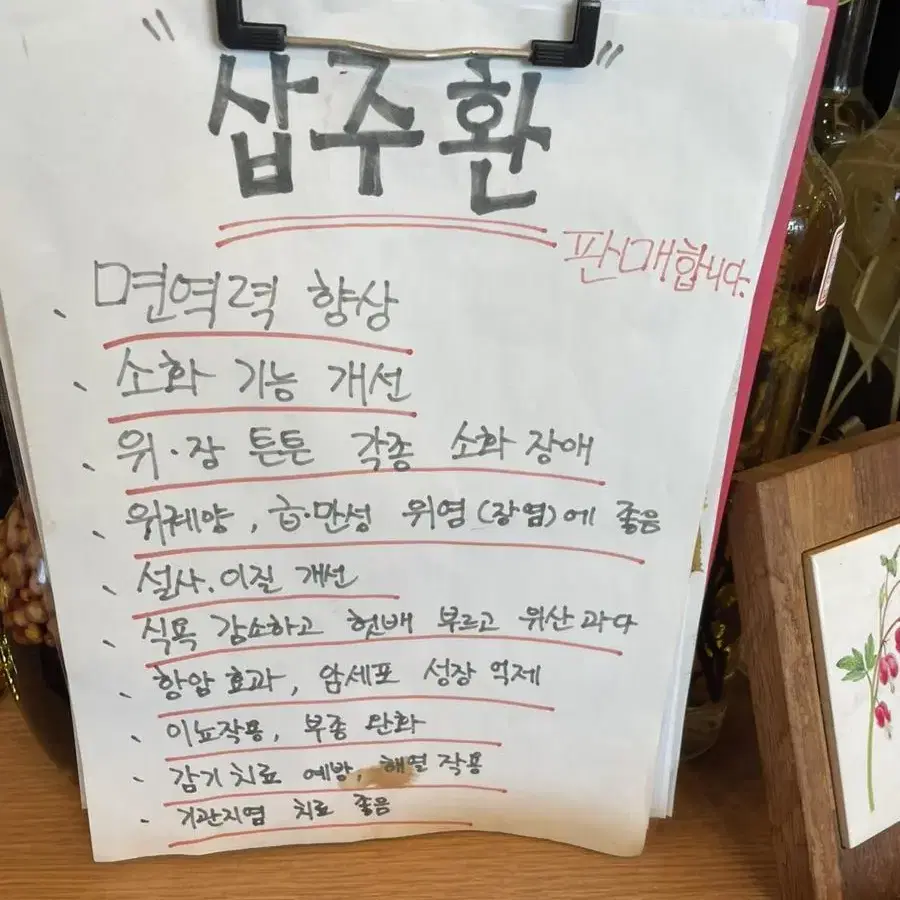 "삽주환"
판매합니다.
、면역력 향상
、소화 기능 개선
、위·장 튼튼 각종 소화 장애
、위궤양, 급·만성 위염(장염)에 좋음
、설사.이질 개선
、식욕 감소하고 헛배 부르고 위산과다
、항암효과, 암세포 성장 억제
、이뇨작용, 부종 완화
、감기치료 예방, 해열작용
、기관지염 치료 좋음